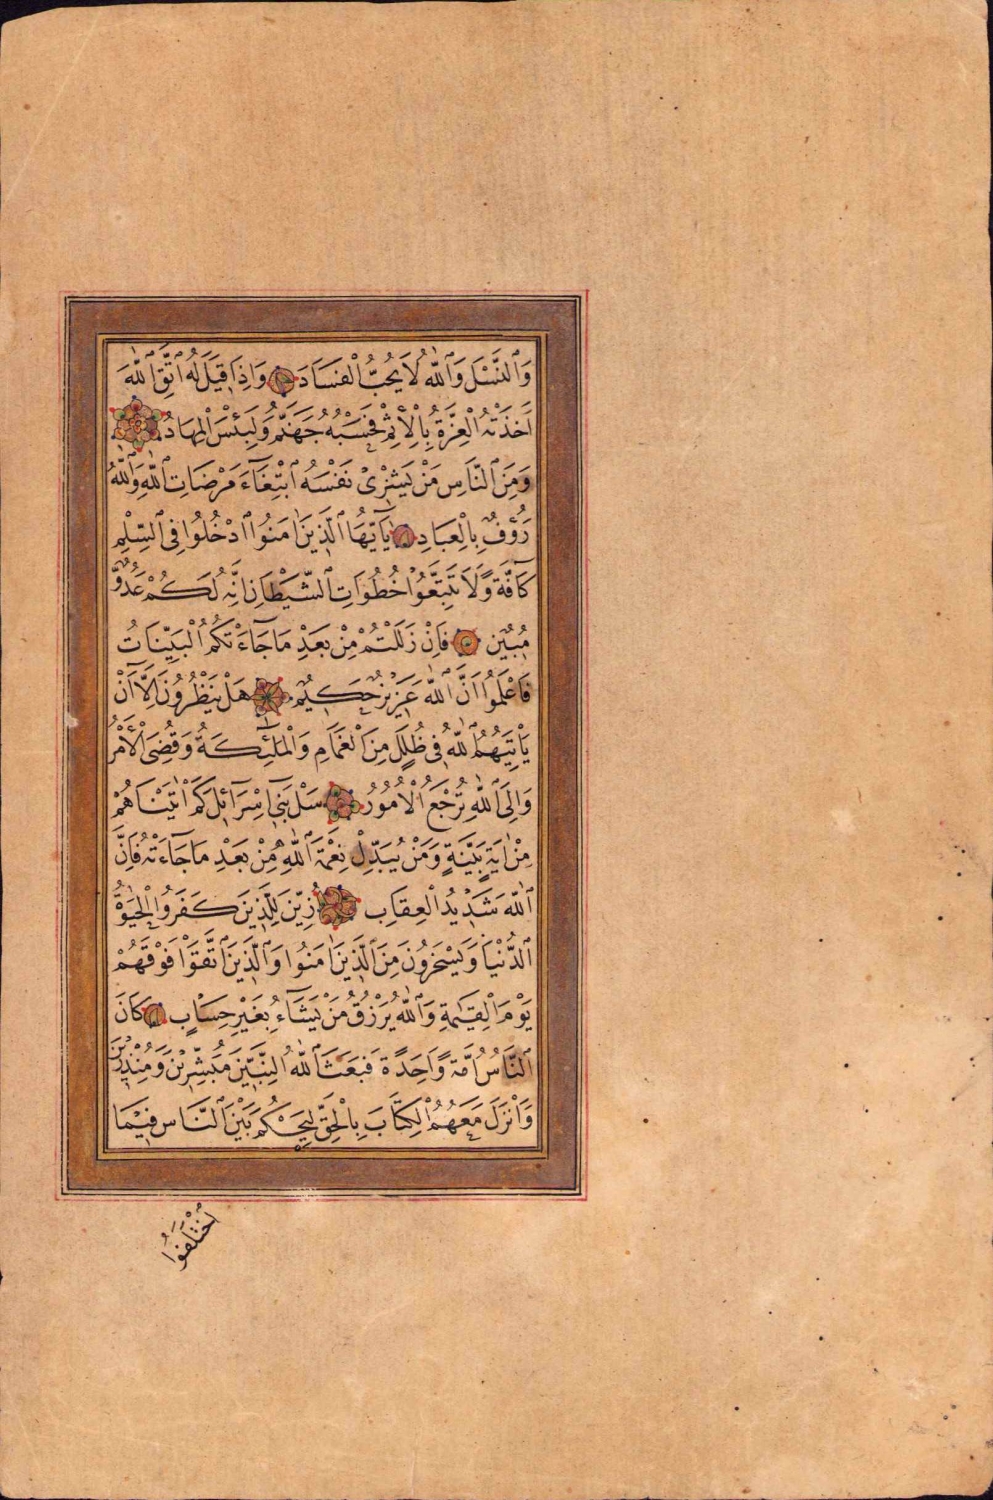 وَٱلنَّسْلَ وَٱللّٰهُ لَا يُحِبُّ الْفَسَادَ وَاِذَا قِيلَ لَهُ ٱتَّقِ ٱللّٰهَ
اَخَذَتْهُ الْعِزَّةُ بِالْاِثْمِ فَحَسْبُهُ جَهَنَّمُ وَلَبِئْسَ الْمِهَادُ
وَمِنَ ٱلنَّاسِ مَنْ يَشْرِى نَفْسَهُ ٱبْتِغَآءَ مَرْضَاتِ ٱللّٰهِ وَٱللّٰهُ
رَؤُفٌ بِالْعِبَادِ يَآ اَيُّهَا ٱلَّذِينَ اٰمَنُوا ٱدْخُلُوا فِى ٱلسِّلْمِ
كَآفَّةً وَلَا تَتَّبِعُوا خُطُوَاتِ ٱلشَّيْطَانِ اِنَّهُ لَكُمْ عَدُوٌّ
مُبِينٌ فَاِنْ زَلَلْتُمْ مِنْ بَعْدِ مَا جَآءَتْكُمُ الْبَيِّنَاتُ
فَاعْلَمُوا اَنَّ ٱللّٰهَ عَزِيزٌ حَكِيمٌ هَلْ يَنْظُرُونَ اِلَّآ اَنْ
يَاْتِيَهُمُ ٱللّٰهُ فِى ظُلَلٍ مِنَ الْغَمَامِ وَالْمَلٰٓئِكَةُ وَقُضِىَ الْاَمْرُ
وَاِلَى ٱللّٰهِ تُرْجَعُ الْاُمُورُ سَلْ بَنِىٓ اِسْرَآئِلَ كَمْ اٰتَيْنَاهُمْ
مِنْ اٰيَةٍ بَيِّنَةٍ وَمَنْ يُبَدِّلْ نِعْمَةَ ٱللّٰهِ مِنْ بَعْدِ مَا جَآءَتْهُ فَاِنَّ
ٱللّٰهَ شَدِيدُ الْعِقَابِ زُيِّنَ لِلَّذِينَ كَفَرُوا الْحَيٰوةُ
ٱلدُّنْيَا وَيَسْخَرُونَ مِنَ ٱلَّذِينَ اٰمَنُوا وَٱلَّذِينَ ٱتَّقَوْا فَوْقَهُمْ
يَوْمَ الْقِيٰمَةِ وَٱللّٰهُ يَرْزُقُ مَنْ يَشَآءُ بِغَيْرِ حِسَابٍ كَانَ
ٱلنَّاسُ اُمَّةً وَاحِدَةً فَبَعَثَ ٱللّٰهُ ٱلنَّبِيِّنَ مُبَشِّرِينَ وَمُنْذِرِينَ
وَاَنْزَلَ مَعَهُمُ الْكِتَابَ بِالْحَقِّ لِيَحْكُمَ بَيْنَ ٱلنَّاسِ فِيمَا
اخْتَلَفُوا